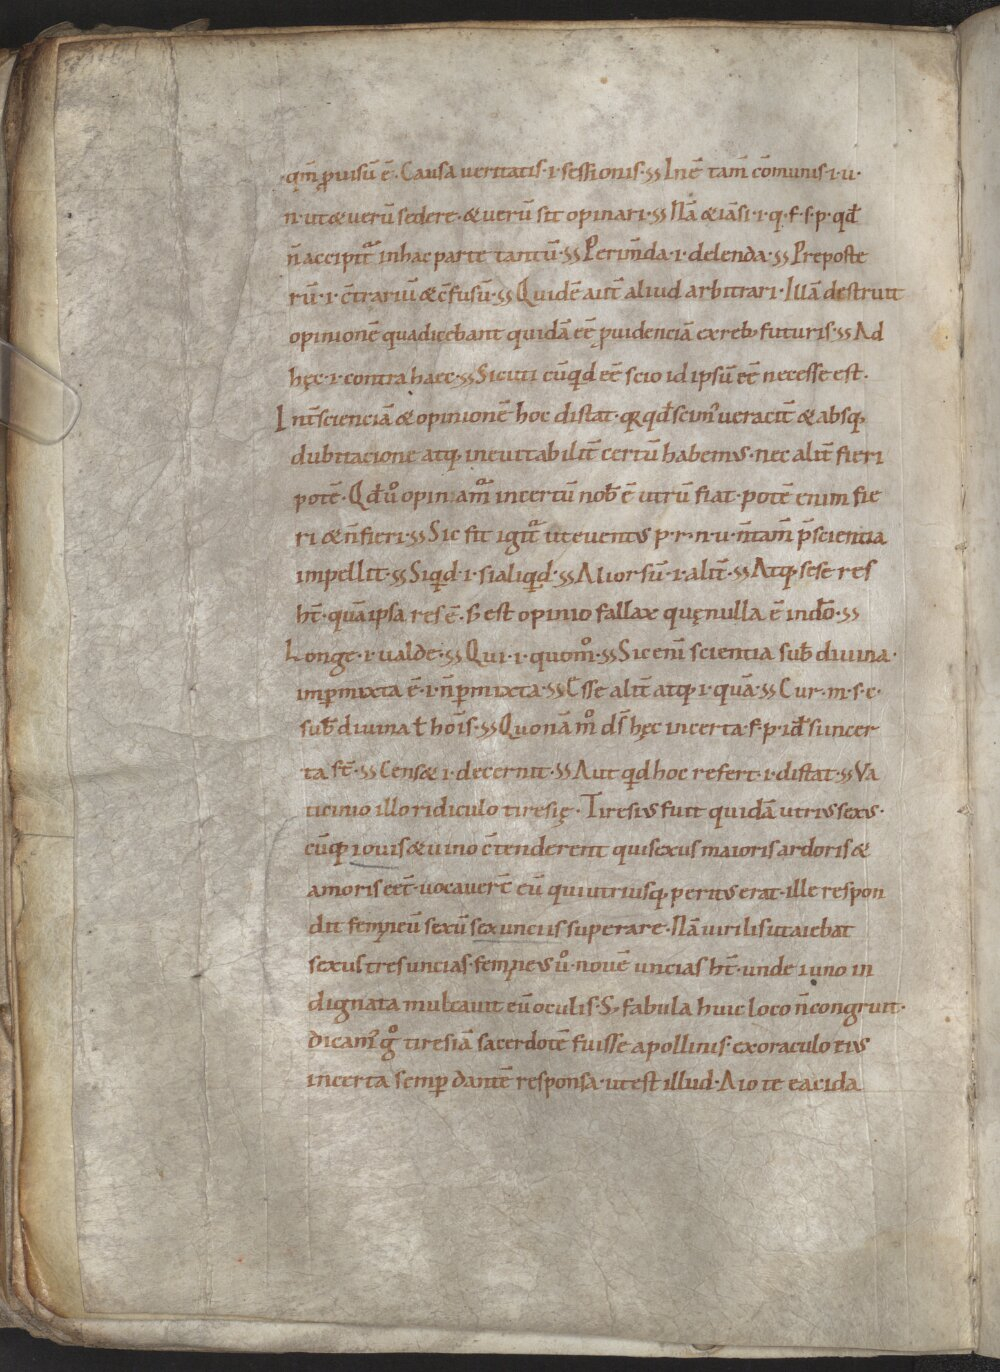 qm̄ p̄uisū ē. Causa ueritatis .i. sessionis. ;; Inē tam̄ cōmunis .i. u.
n. ut & uerū sedere. & uerū sit opinari. ;; Nā & iāsi .i. q. f. s. p. qđ
n̄ accipit᷑ in hac parte tantū. ;; Perim̄da .i. delenda. ;; Preposte
rū .i. c̄trariū & c̄fusū. ;; Quidē aut̄ aliud arbitrari. Illā destruit
opinionē qua dicebant quidā eē p̄uidenciā ex reb; futuris. ;; Ad
hęc .i. contra haec. ;; Sicuti cū qd eē scio id ipsū eē necesse est.
Int̄ scienciā & opinionē hoc distat. qꝛ qđ scim᷒ veracit̄ & absq;
dubitacione atq; ineuitabilit̄ certū habemus. nec alit̄ fieri
potē. Qđ uͦ opinam᷑ incertū nob̄ ē utrū fiat. potē enim fie
ri & n̄ fieri. ;; Sic fit igit᷑ ut euentus p. r. n. u. n̄ tam̄ p̄scientia
impellit. ;; Siqd .i. si aliqd. ;; Aliorsū .i. alit̄. ;; Atq; sese res
ht̄. quā ipsa res ē. s̄ est opinio fallax quę nulla ē in dō. ;;
Longe .i. ualde. ;; Qui .i. quomͦ. ;; Sic enī scientia sub̄ diuina.
imꝑmixta ē .i. n̄ ꝑmixta. ;; Esse alit̄ atq; .i. quā. ;; Cur. m. s. c.
sub̄ diuina ł hōis. ;; Quonā mͦ ds̄ hęc incerta. f. p. idē sū incer
ta st̄. ;; Cens& .i. decernit. ;; Aut qd hoc refert .i. distat. ;; Va
ticinio illo ridiculo tiresię. Tiresius fuit quidā utrius sexus.
cūq; iouis & uino c̄tenderent qui sexus maioris ardoris &
amoris eēt. uocauert̄ eū qui utriusq; peritus erat. ille respon
dit femineū sexū sex unciis superare. Nā uirilis ut aiebat
sexus tres uncias. femineus uͦ nouē uncias ht̄. unde iuno in
dignata mulcauit eū oculis. S; fabula huic loco n̄ congruit.
dicam᷒ gͦ tiresiā sacerdotē fuisse apollinis. ex oraculo eius
incerta semꝑ dantē responsa. ut est illud. Aio te eacida